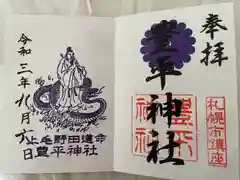 奉拝
豊平神社
札幌市鎮座
令和三年九月六日
上毛野田道命
豊平神社